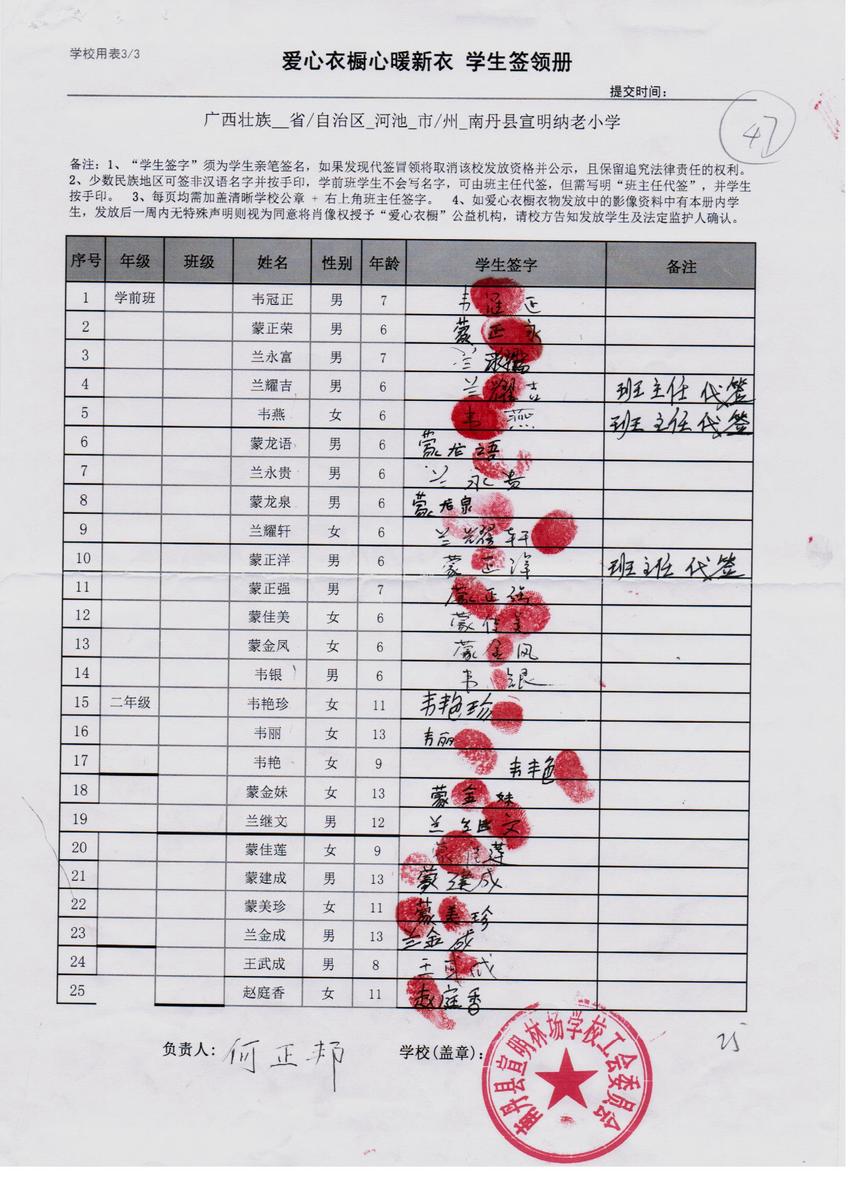 学校用表3/3
爱心衣橱心暖新衣 学生签领册
提交时间:
广西壮族__省/自治区_河池_市/州_南丹县宣明纳老小学
47
备注:1、“学生签字”须为学生亲笔签名,如果发现代签冒领将取消该校发放资格并公示,且保留追究法律责任的权利。
2、少数民族地区可签非汉语名字并按手印,学前班学生不会写名字,可由班主任代签,但需写明“班主任代签”,并学生
按手印。 3、每页均需加盖清晰学校公章 + 右上角班主任签字。 4、如爱心衣橱衣物发放中的影像资料中有本册内学
生,发放后一周内无特殊声明则视为同意将肖像权授予“爱心衣橱”公益机构,请校方告知发放学生及法定监护人确认。
序号 年级 班级 姓名 性别 年龄 学生签字 备注
1 学前班 韦冠正 男 7 韦冠正
2 蒙正荣 男 6 蒙正永
3 兰永富 男 7 兰永富
4 兰耀吉 男 6 兰耀吉 班主任代签
5 韦燕 女 6 韦燕 班主任代签
6 蒙龙语 男 6 蒙龙语
7 兰永贵 男 6 兰永贵
8 蒙龙泉 男 6 蒙龙泉
9 兰耀轩 女 6 兰耀轩
10 蒙正洋 男 6 蒙正洋 班主任代签
11 蒙正强 男 7 蒙正强
12 蒙佳美 女 6 蒙佳美
13 蒙金凤 女 6 蒙金凤
14 韦银 男 6 韦银
15 二年级 韦艳珍 女 11 韦艳珍
16 韦丽 女 13 韦丽
17 韦艳 女 9 韦艳
18 蒙金妹 女 13 蒙金妹
19 兰继文 男 12 兰继文
20 蒙佳莲 女 9 蒙佳莲
21 蒙建成 男 13 蒙建成
22 蒙美珍 女 11 蒙美珍
23 兰金成 男 13 兰金成
24 王武成 男 8 王武成
25 赵庭香 女 11 赵庭香
负责人: 何正邦 学校(盖章):
南丹县宣明林场学校工会委员会
25